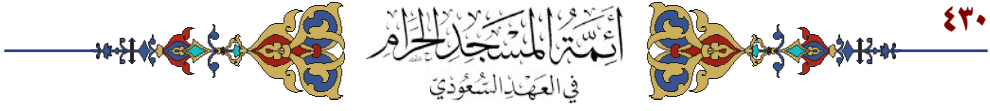 ٤٣٠
أَئِمَّةُ المَسْجِدِ الحَرَامِ
في العَهْدِ السُّعُودِيّ